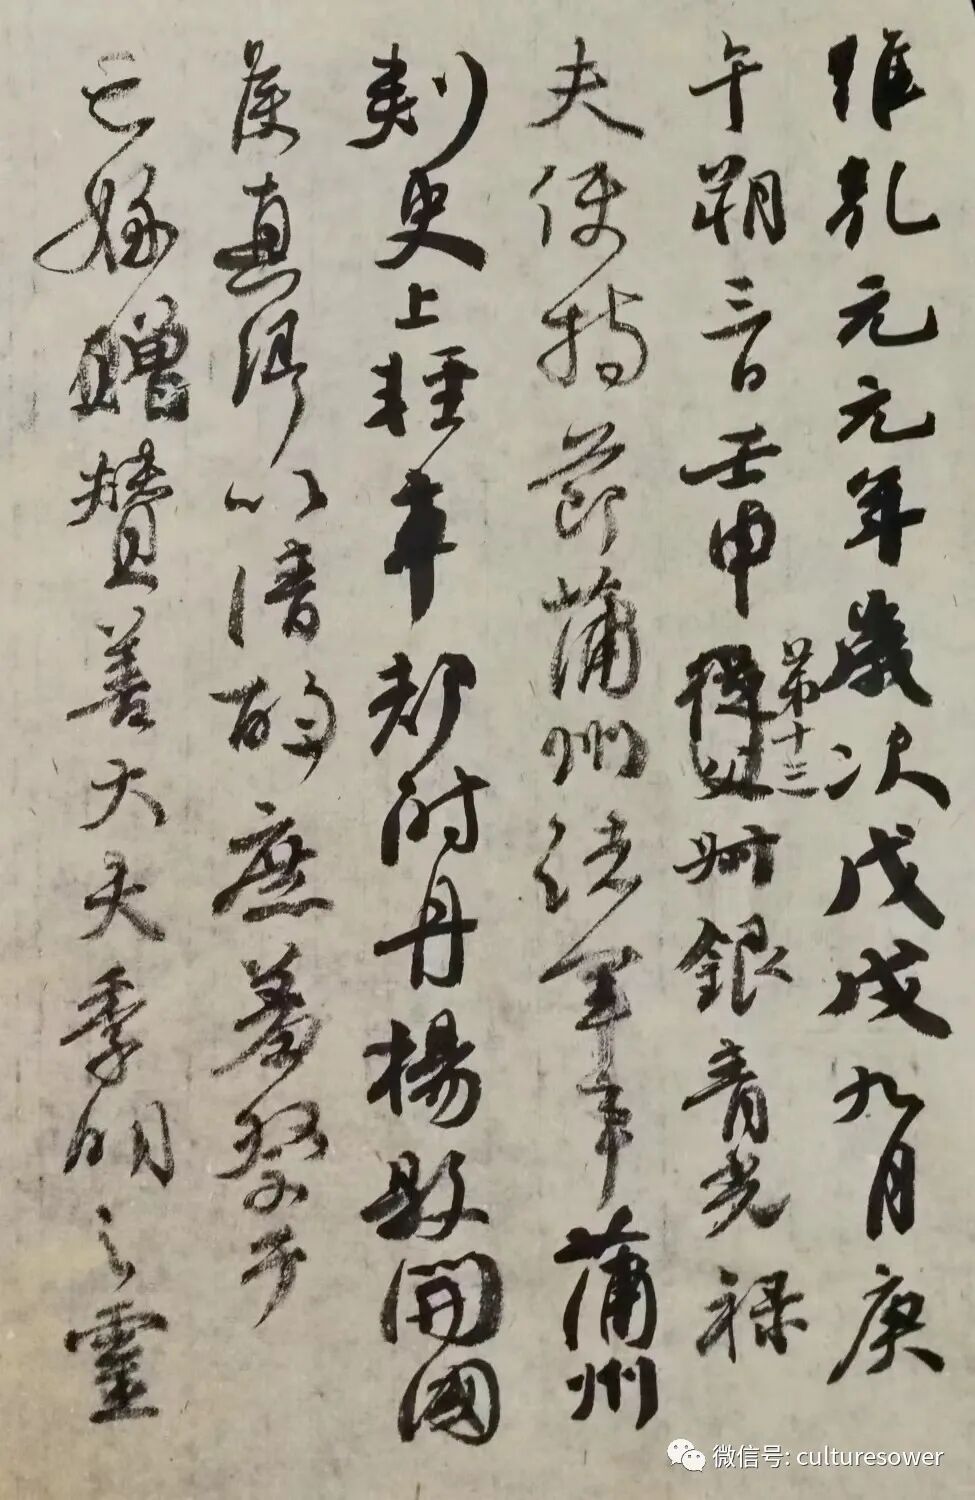 維乾元元年歲次戊戌九月庚
午朔三日壬申第十三從父叔銀青光祿
夫使持節蒲州諸軍事蒲州
刺史上輕車都尉丹楊縣開國
侯真卿以清酌庶羞祭于
亡姪贈贊善大夫季明之靈
微信号: culturesower